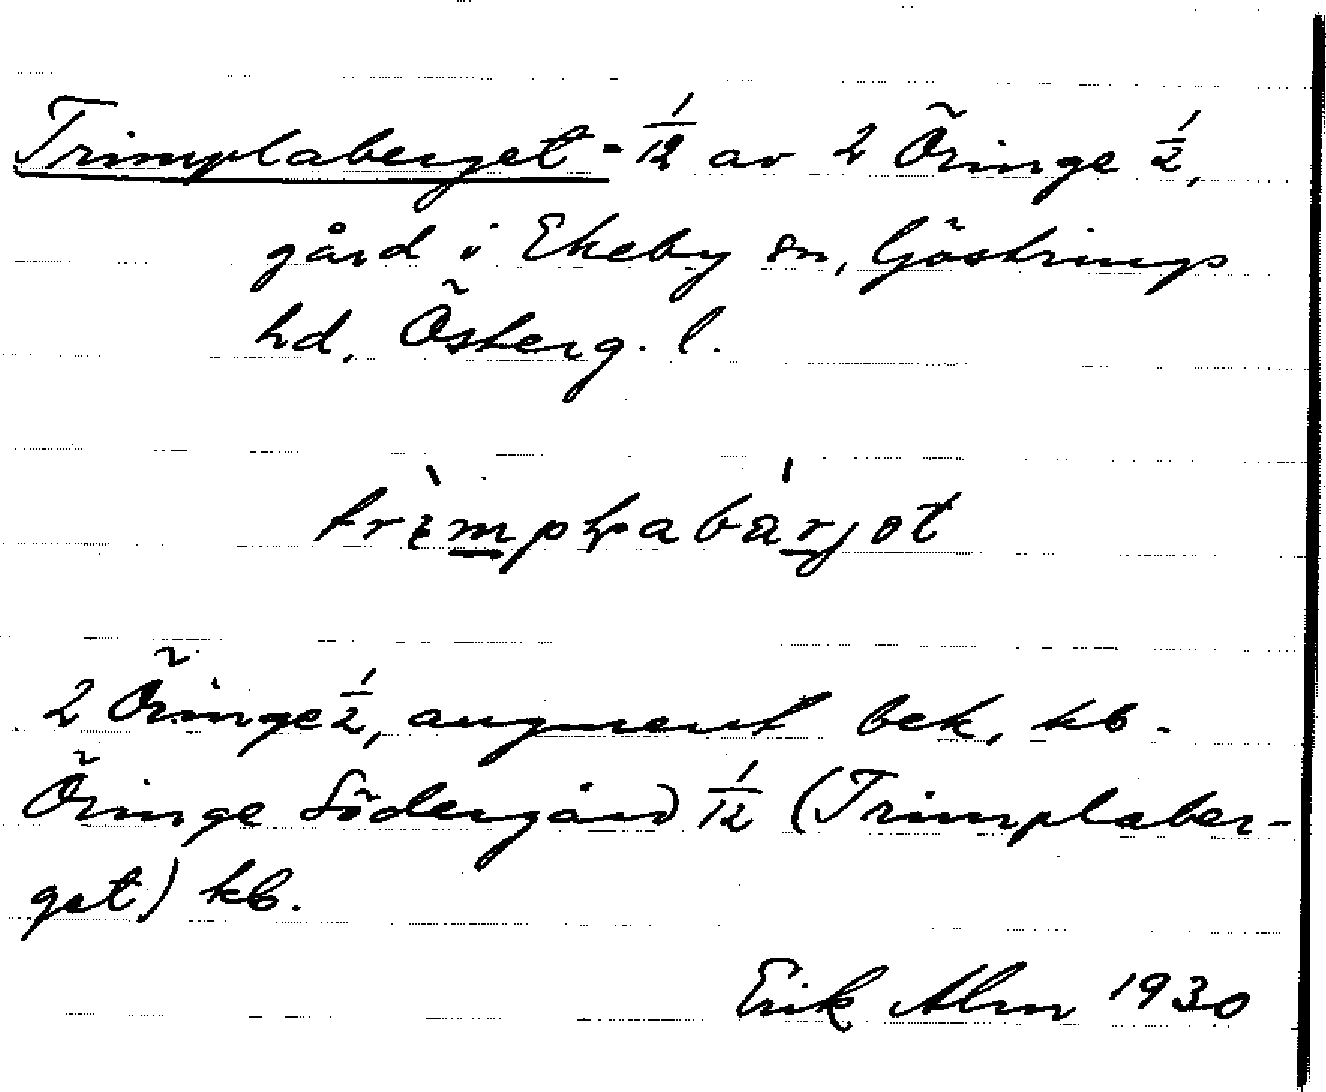 Trimplaberget = 1/12 av 2 Öringe 1/2,
gård i Ekeby sn, Göstrings
hd, Österg. l.
2 Öringe 1/2, augment bek, kb.
Öringe Södergård 1/12 (Trimplaber-
get) kb.
Erik Alm 1930